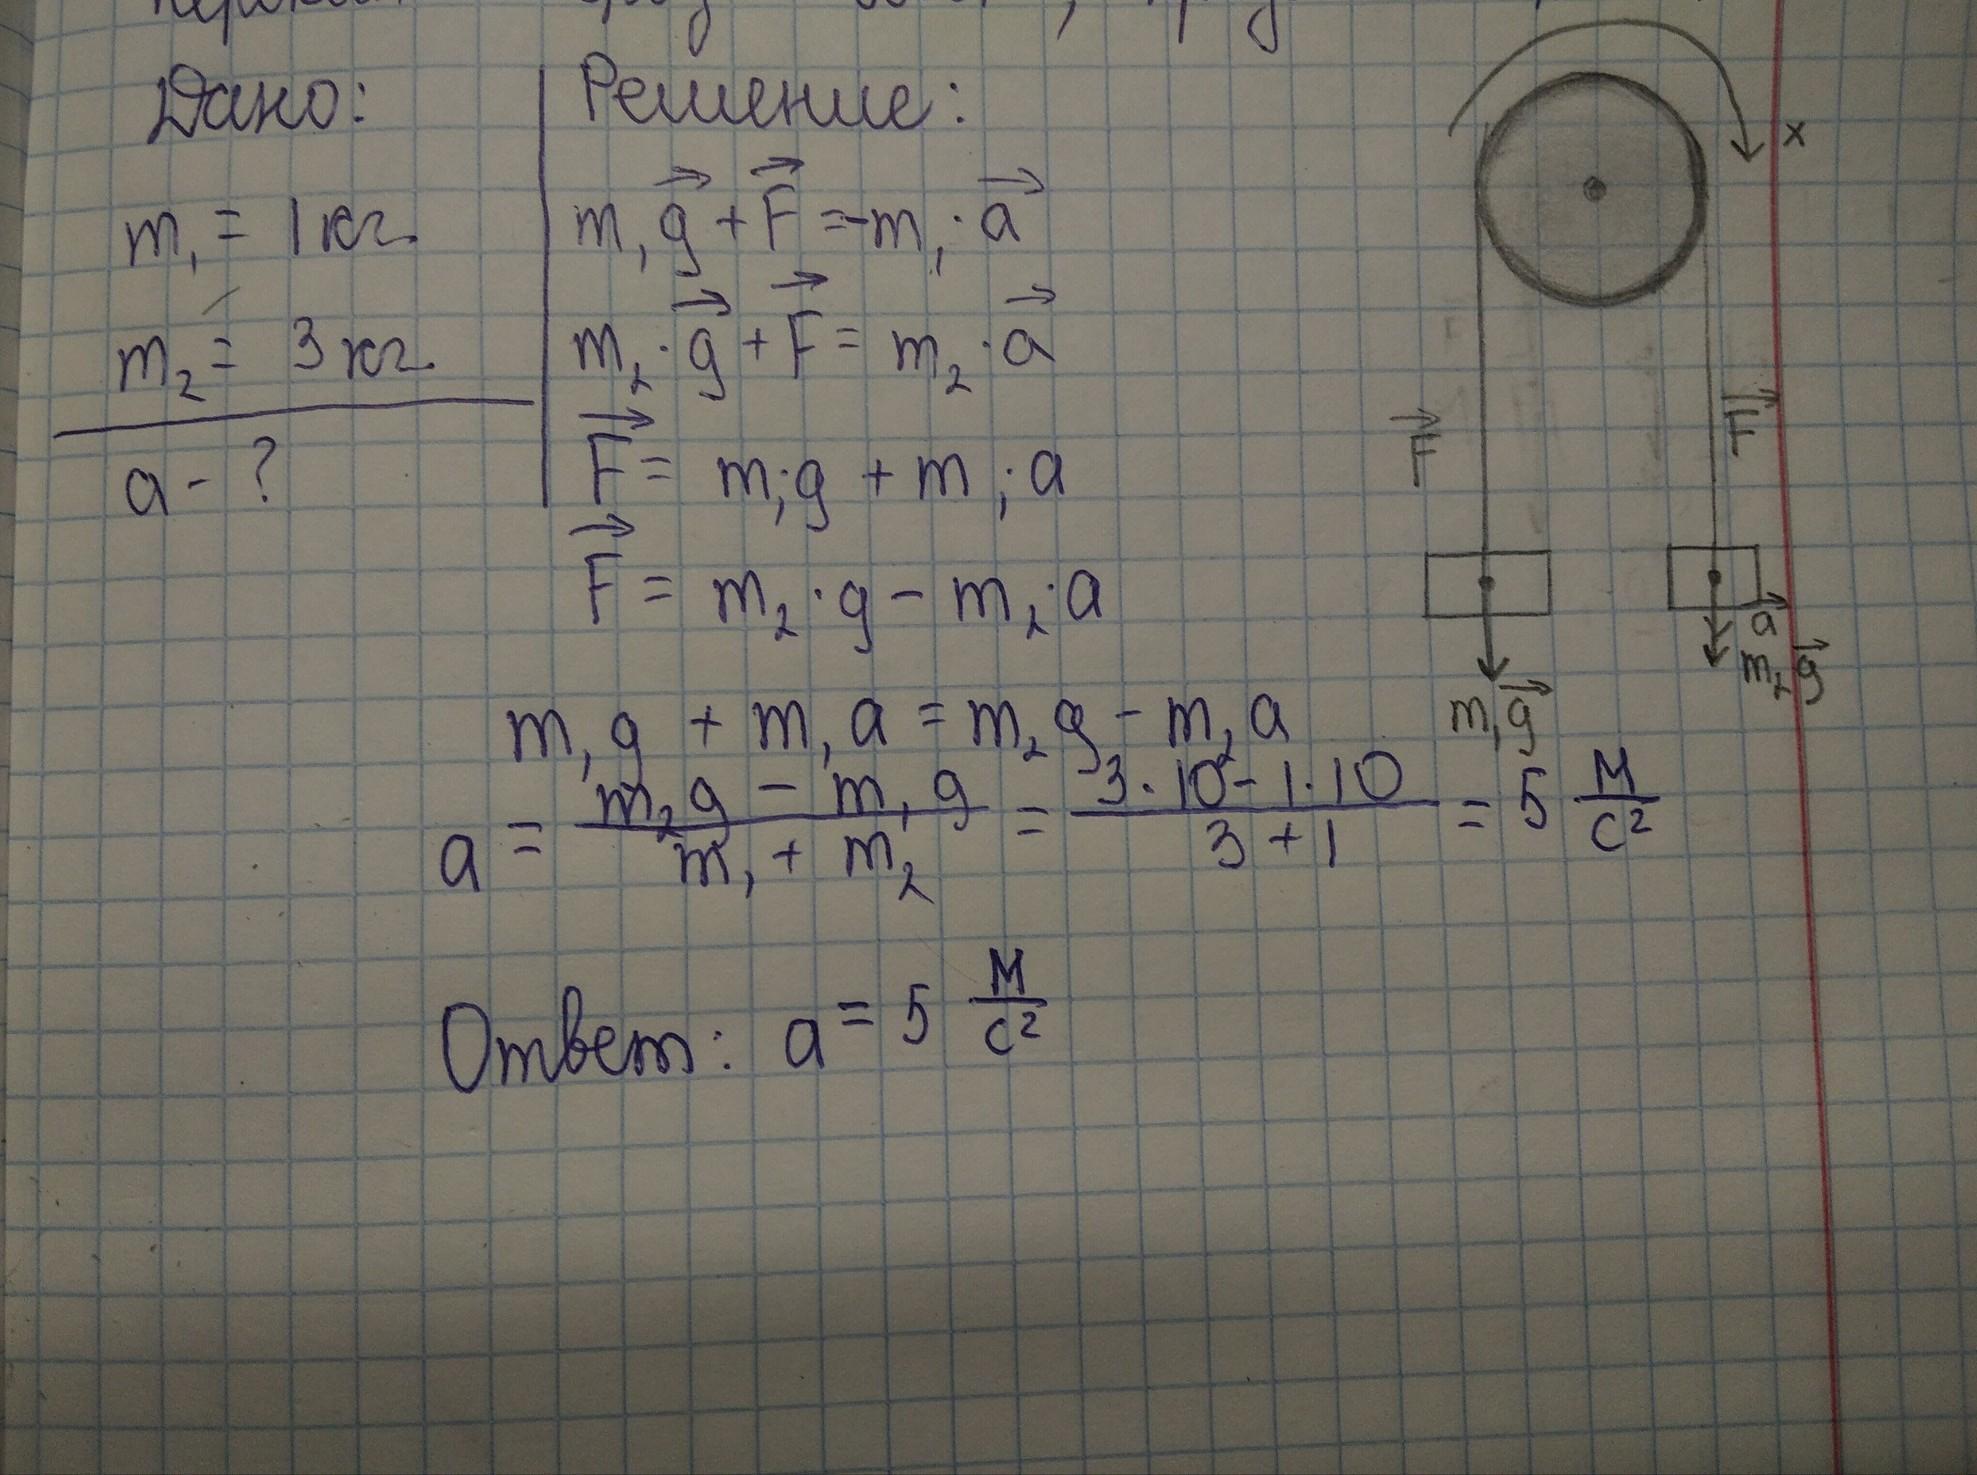 Дано:
m₁ = 1 кг
m₂ = 3 кг
a - ?
Решение:
m₁g⃗ + F⃗ = -m₁·a⃗
m₂·g⃗ + F⃗ = m₂·a⃗
F⃗ = m₁·g + m₁·a
F⃗ = m₂·g - m₂·a
m₁g + m₁a = m₂g - m₂a
a = (m₂g - m₁g)/(m₁ + m₂) = (3·10 - 1·10)/(3 + 1) = 5 м/с²
Ответ: a = 5 м/с²
x
F⃗
F⃗
a⃗
m₁g⃗
m₂g⃗